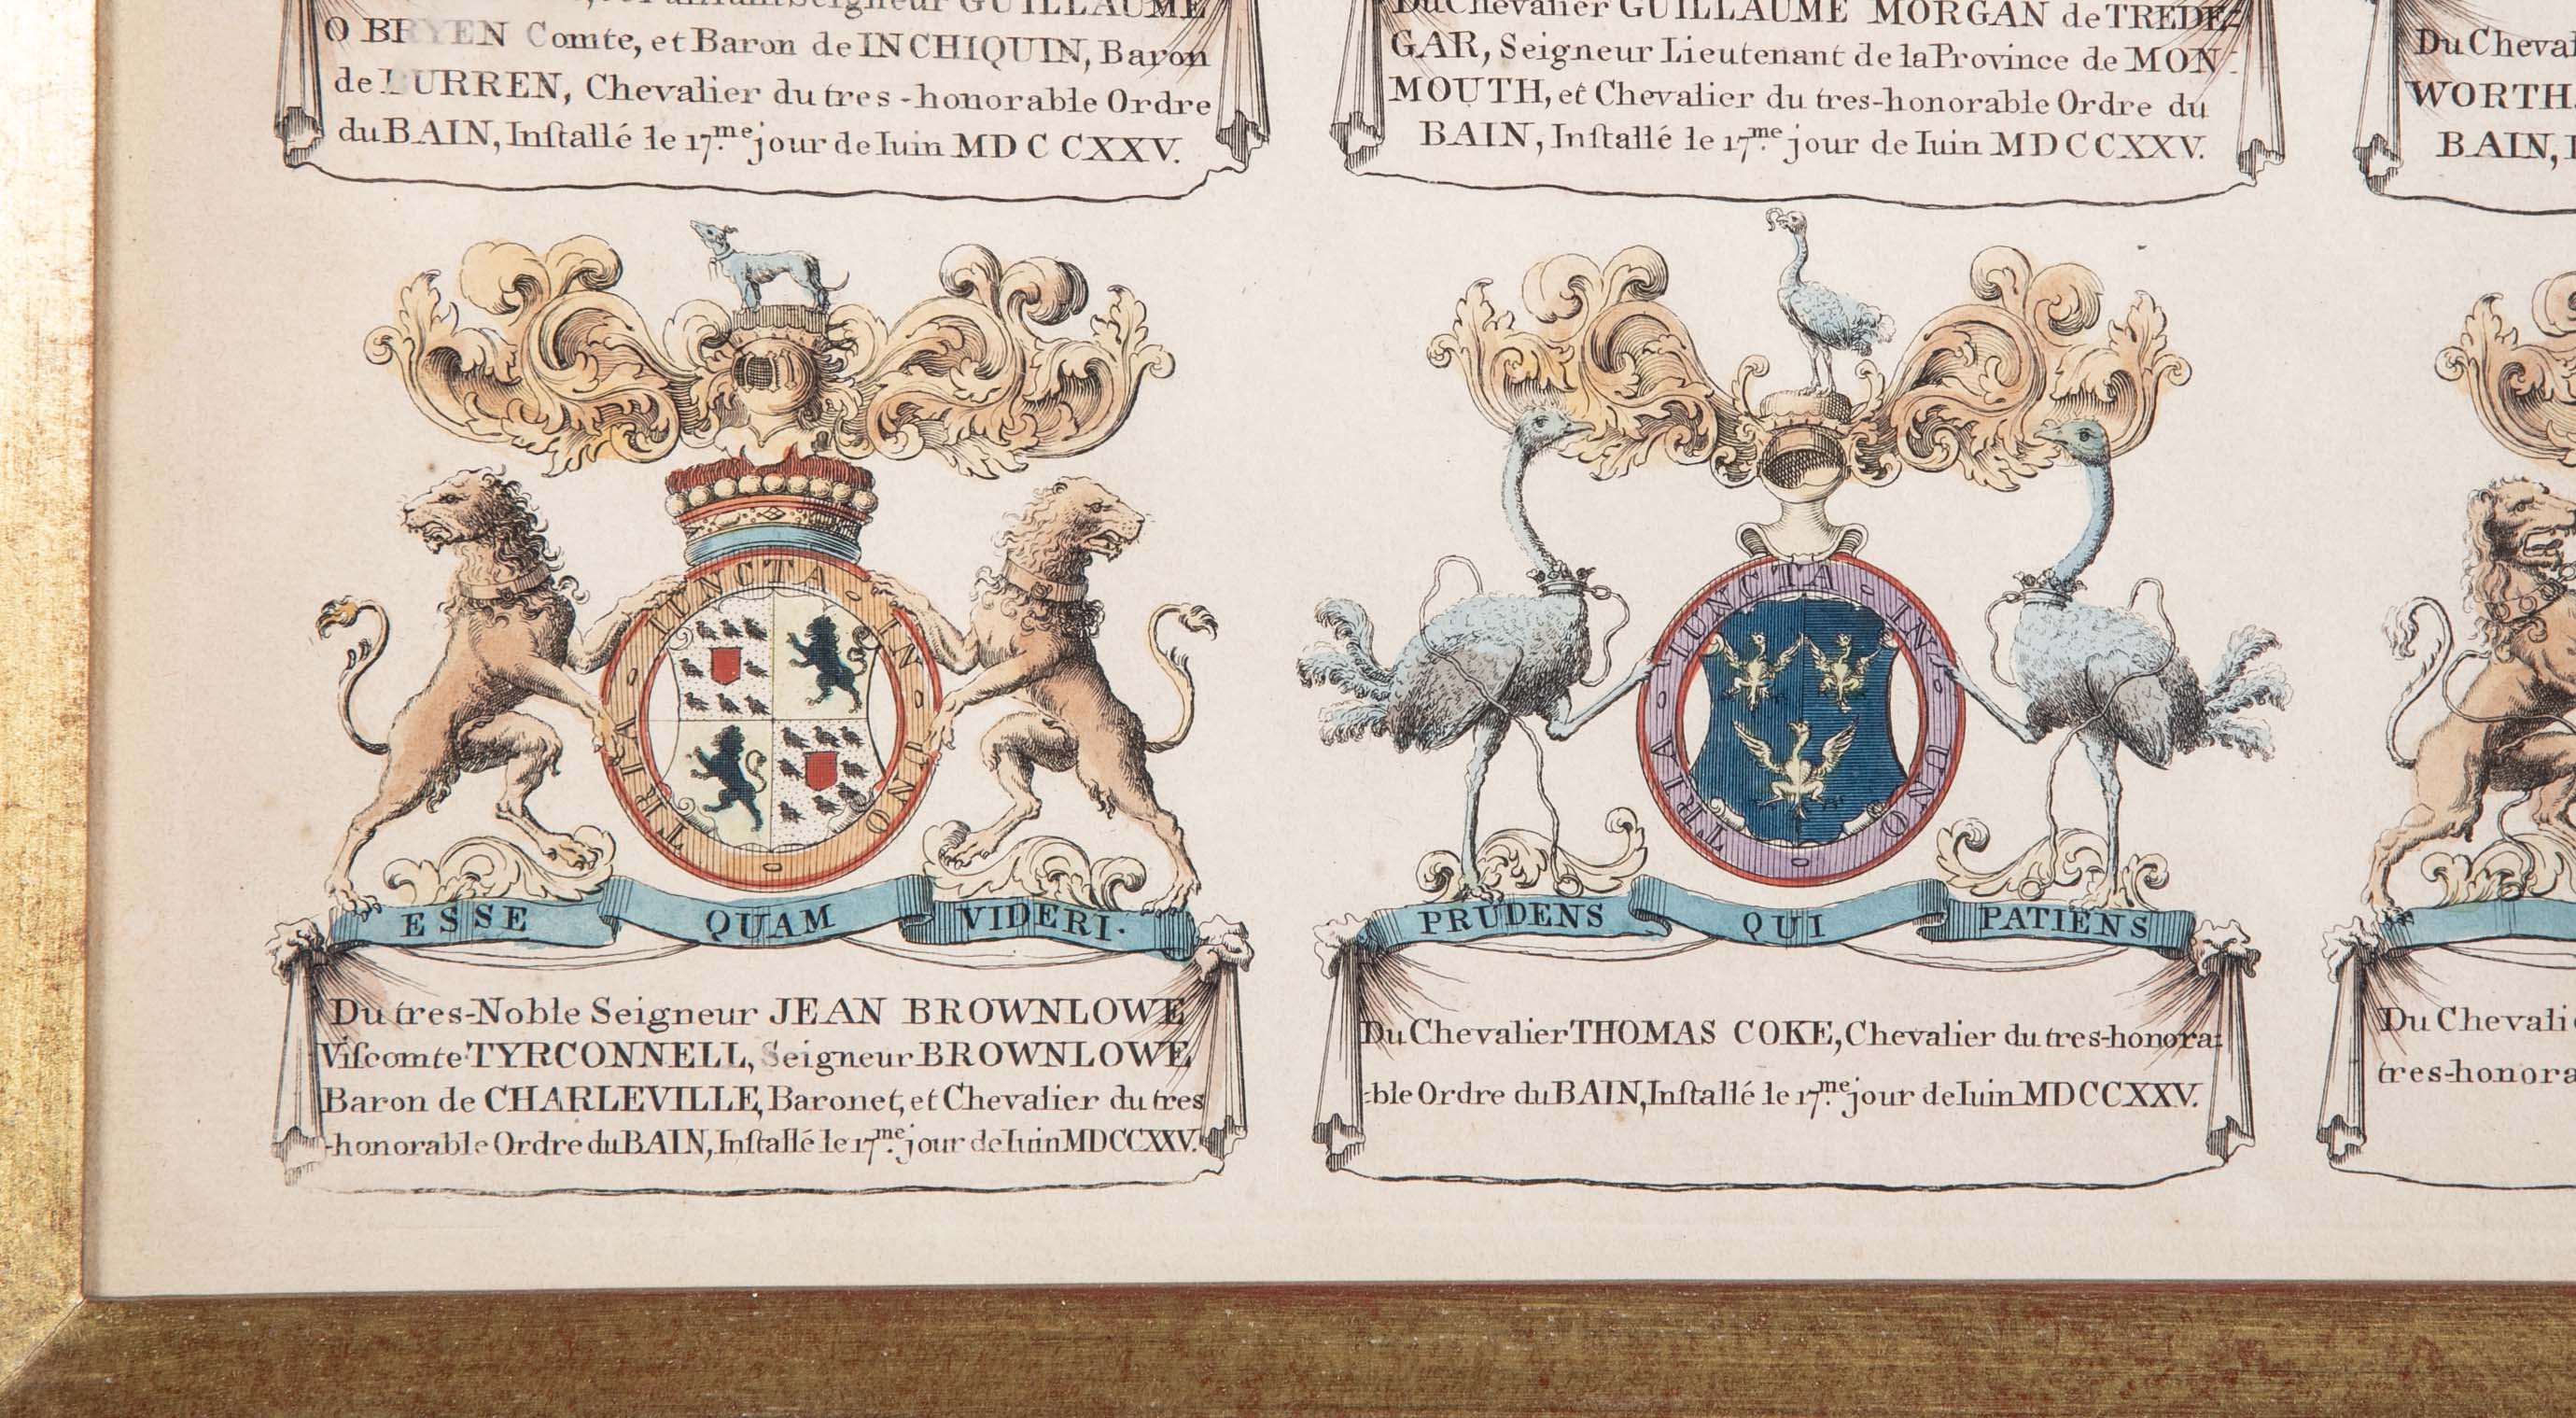 GUILLAUME
O BRYEN Comte, et Baron de INCHIQUIN, Baron
de BURREN, Chevalier du tres-honorable Ordre
du BAIN, Inſtallé le 17.me jour de Iuin MDCCXXV.
Du Chevalier GUILLAUME MORGAN de TREDE=
GAR, Seigneur Lieutenant de la Province de MON=
MOUTH, et Chevalier du tres-honorable Ordre du
BAIN, Inſtallé le 17.me jour de Iuin MDCCXXV.
Du Cheval
WORTH
BAIN, I
TRIA-IUNCTA-IN-UNO
ESSE QUAM VIDERI.
Du tres-Noble Seigneur JEAN BROWNLOWE
Viſcomte TYRCONNELL, Seigneur BROWNLOWE
Baron de CHARLEVILLE, Baronet, et Chevalier du tres
-honorable Ordre du BAIN, Inſtallé le 17.me jour de Iuin MDCCXXV.
TRIA-IUNCTA-IN-UNO
PRUDENS QUI PATIENS
Du Chevalier THOMAS COKE, Chevalier du tres-honora=
=ble Ordre du BAIN, Inſtallé le 17.me jour de Iuin MDCCXXV.
Du Chevali
tres-honora